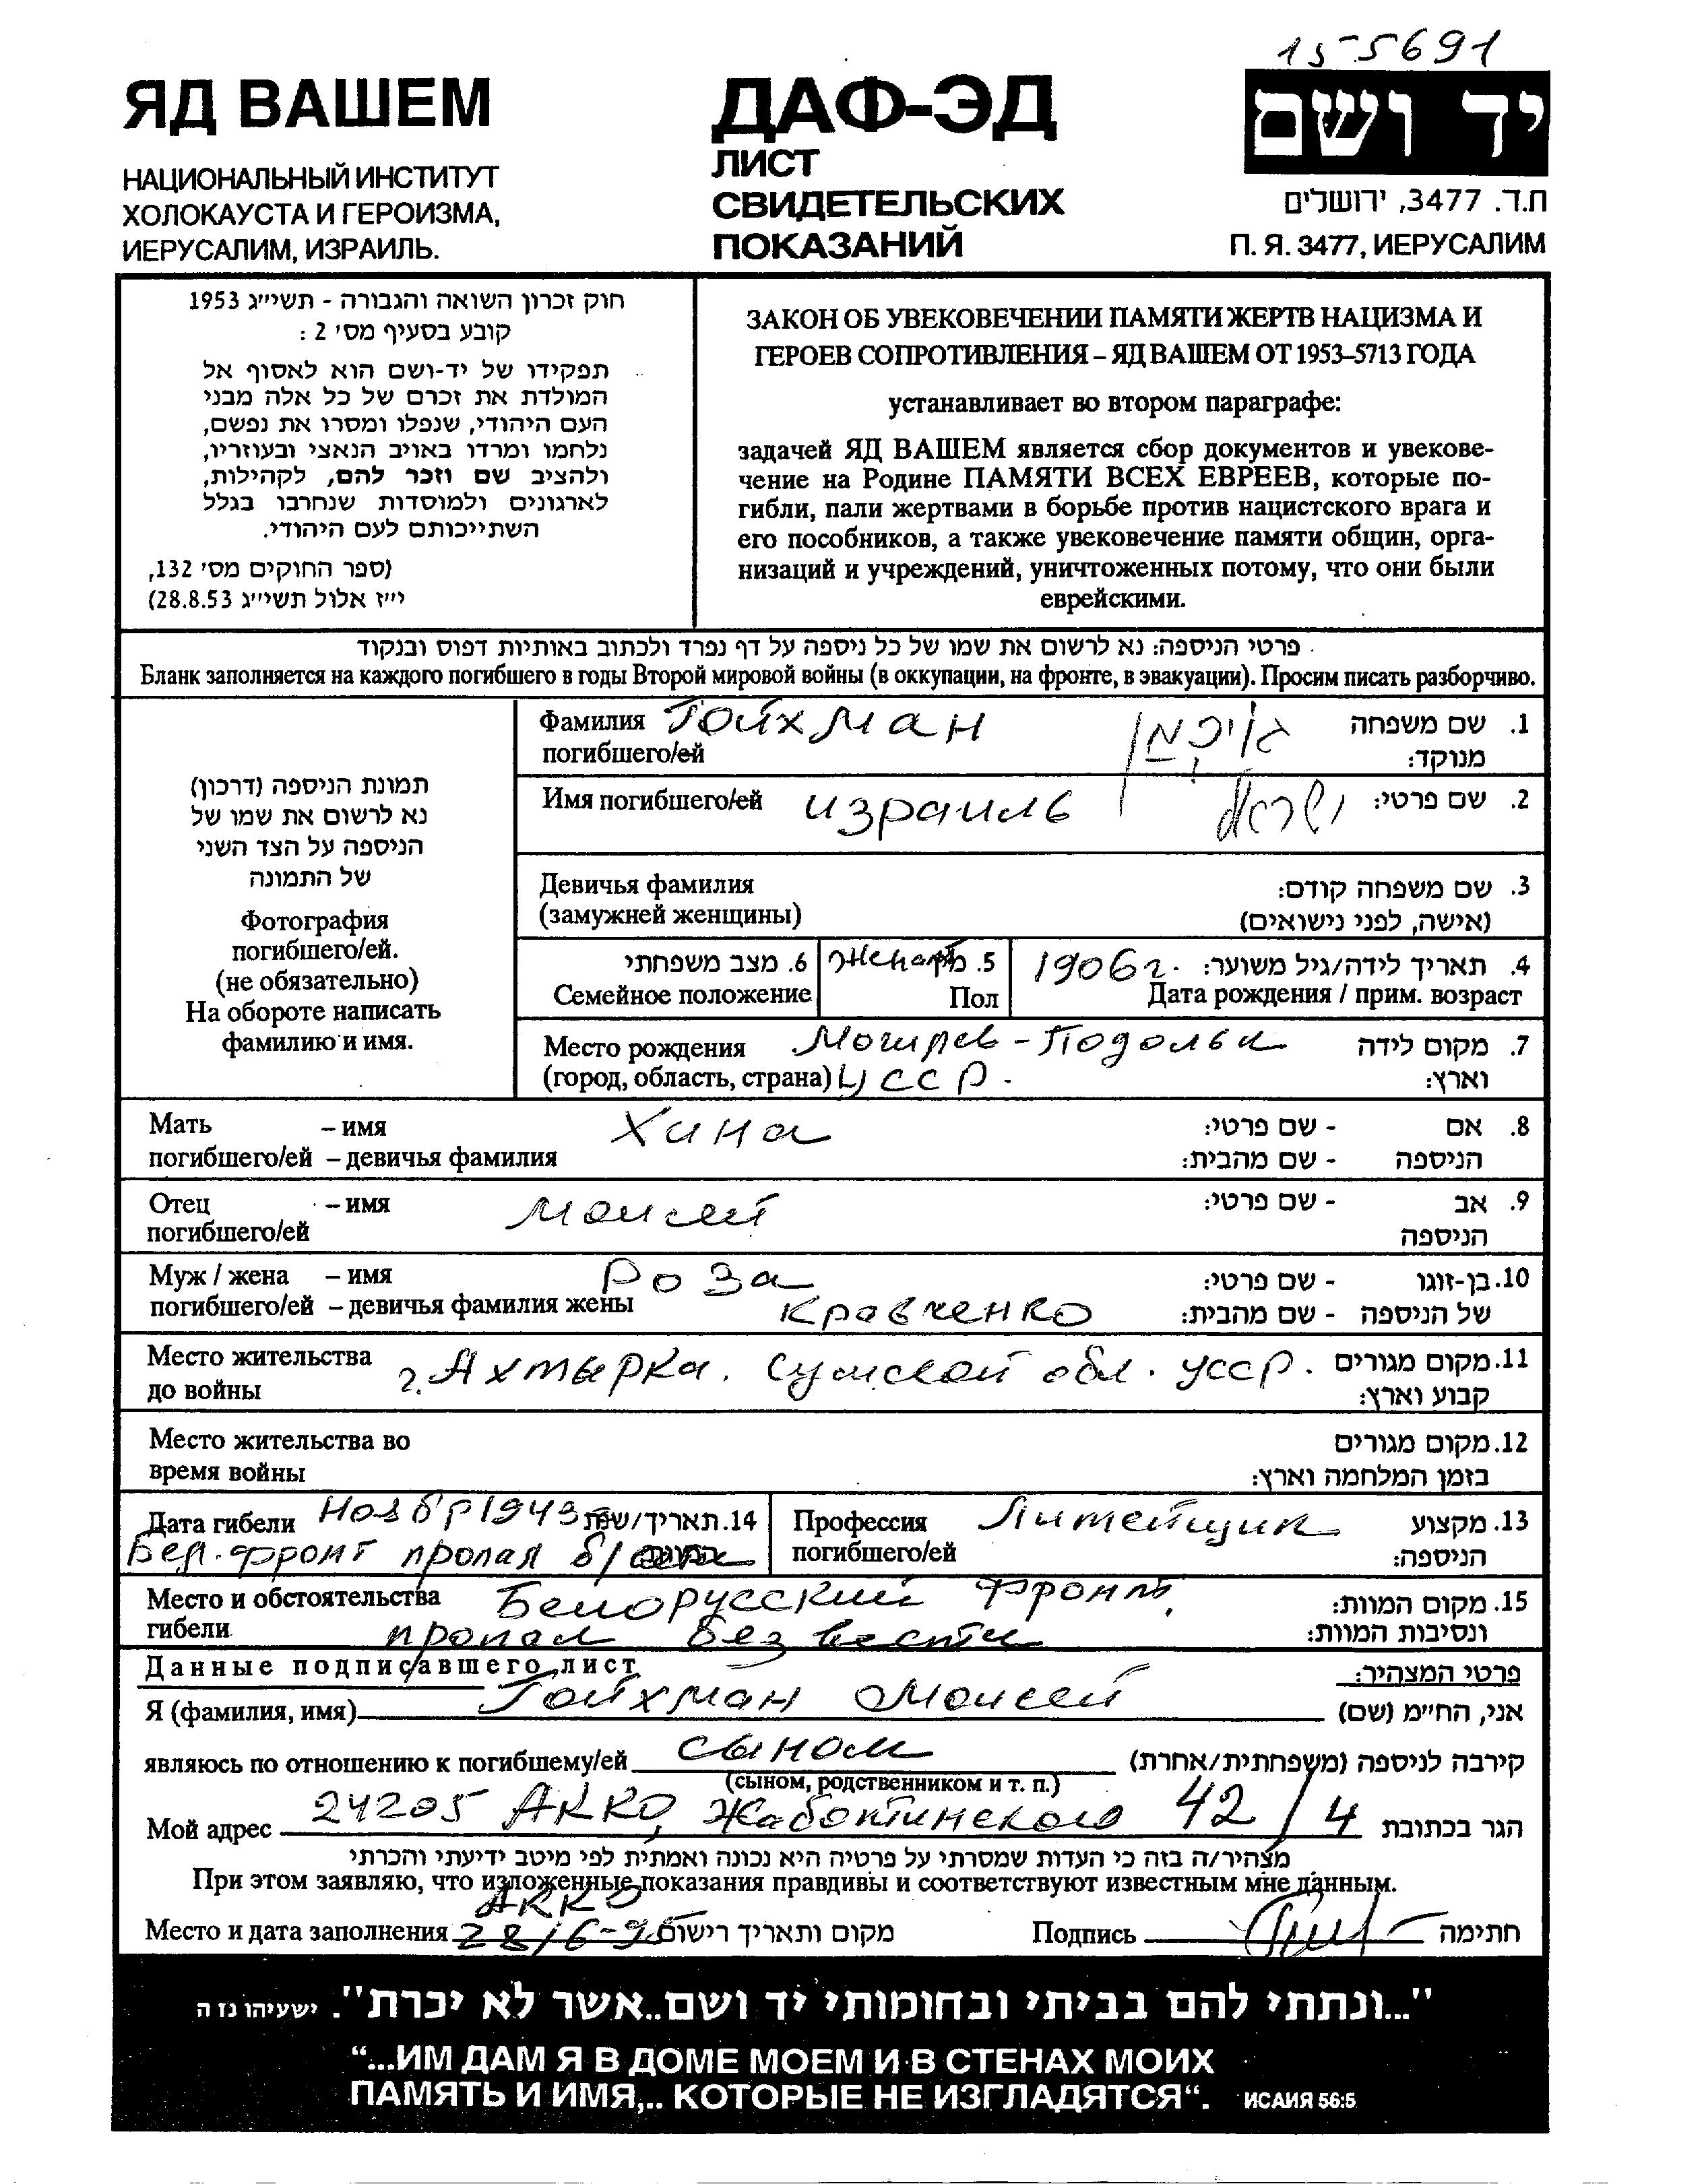 15-5691
ЯД ВАШЕМ
НАЦИОНАЛЬНЫЙ ИНСТИТУТ
ХОЛОКАУСТА И ГЕРОИЗМА,
ИЕРУСАЛИМ, ИЗРАИЛЬ.
ДАФ-ЭД
ЛИСТ
СВИДЕТЕЛЬСКИХ
ПОКАЗАНИЙ
יד ושם
ת.ד. 3477, ירושלים
П. Я. 3477, ИЕРУСАЛИМ
חוק זכרון השואה והגבורה - תשי״ג 1953
קובע בסעיף מס׳ 2 :
תפקידו של יד-ושם הוא לאסוף אל
המולדת את זכרם של כל אלה מבני
העם היהודי, שנפלו ומסרו את נפשם,
נלחמו ומרדו באויב הנאצי ובעוזריו,
ולהציב שם וזכר להם, לקהילות,
לארגונים ולמוסדות שנחרבו בגלל
השתייכותם לעם היהודי.
(ספר החוקים מס׳ 132,
י״ז אלול תשי״ג 28.8.53)
ЗАКОН ОБ УВЕКОВЕЧЕНИИ ПАМЯТИ ЖЕРТВ НАЦИЗМА И
ГЕРОЕВ СОПРОТИВЛЕНИЯ – ЯД ВАШЕМ ОТ 1953–5713 ГОДА
устанавливает во втором параграфе:
задачей ЯД ВАШЕМ является сбор документов и увекове-
чение на Родине ПАМЯТИ ВСЕХ ЕВРЕЕВ, которые по-
гибли, пали жертвами в борьбе против нацистского врага и
его пособников, а также увековечение памяти общин, орга-
низаций и учреждений, уничтоженных потому, что они были
еврейскими.
פרטי הניספה: נא לרשום את שמו של כל ניספה על דף נפרד ולכתוב באותיות דפוס ובנקוד
Бланк заполняется на каждого погибшего в годы Второй мировой войны (в оккупации, на фронте, в эвакуации). Просим писать разборчиво.
תמונת הניספה (דרכון)
נא לרשום את שמו של
הניספה על הצד השני
של התמונה
Фотография
погибшего/ей.
(не обязательно)
На обороте написать
фамилию и имя.
Фамилия Гойхман גויכמן 1. שם משפחה
погибшего/ей מנוקד:
Имя погибшего/ей израиль ישראל 2. שם פרטי:
Девичья фамилия 3. שם משפחה קודם:
(замужней женщины) (אישה, לפני נישואים)
6. מצב משפחתי женат 5. מין 1906 г. 4. תאריך לידה/גיל משוער:
Семейное положение Пол Дата рождения / прим. возраст
Место рождения Могилев-Подольск 7. מקום לידה
(город, область, страна) УССР. וארץ:
Мать – имя Хина 8. אם - שם פרטי:
погибшего/ей – девичья фамилия הניספה - שם מהבית:
Отец – имя Моисей 9. אב - שם פרטי:
погибшего/ей הניספה
Муж / жена – имя Роза 10. בן-זוגו - שם פרטי:
погибшего/ей – девичья фамилия жены Кравченко של הניספה - שם מהבית:
Место жительства г. Ахтырка. Сумской обл. УССР. 11. מקום מגורים
до войны קבוע וארץ:
Место жительства во 12. מקום מגורים
время войны בזמן המלחמה וארץ:
Дата гибели Ноябр 1943 14. תאריך/שנת
Бел. фронт пропал б/вести המוות:
Профессия Литейщик 13. מקצוע
погибшего/ей הניספה:
Место и обстоятельства Белорусский фронт, 15. מקום המוות:
гибели пропал без вести ונסיבות המוות:
Данные подписавшего лист פרטי המצהיר:
Я (фамилия, имя) Гойхман Моисей אני, הח״מ (שם)
являюсь по отношению к погибшему/ей сыном קירבה לניספה (משפחתית/אחרת)
(сыном, родственником и т. п.)
Мой адрес 24205 АККО, Жаботинского 42/4 הגר בכתובת
מצהיר/ה בזה כי העדות שמסרתי על פרטיה היא נכונה ואמתית לפי מיטב ידיעתי והכרתי
При этом заявляю, что изложенные показания правдивы и соответствуют известным мне данным.
АККО
Место и дата заполнения 28/6-95 מקום ותאריך רישום Подпись חתימה
"...ונתתי להם בביתי ובחומותי יד ושם..אשר לא יכרת". ישעיהו נז ה
“...ИМ ДАМ Я В ДОМЕ МОЕМ И В СТЕНАХ МОИХ
ПАМЯТЬ И ИМЯ,.. КОТОРЫЕ НЕ ИЗГЛАДЯТСЯ“. ИСАИЯ 56:5